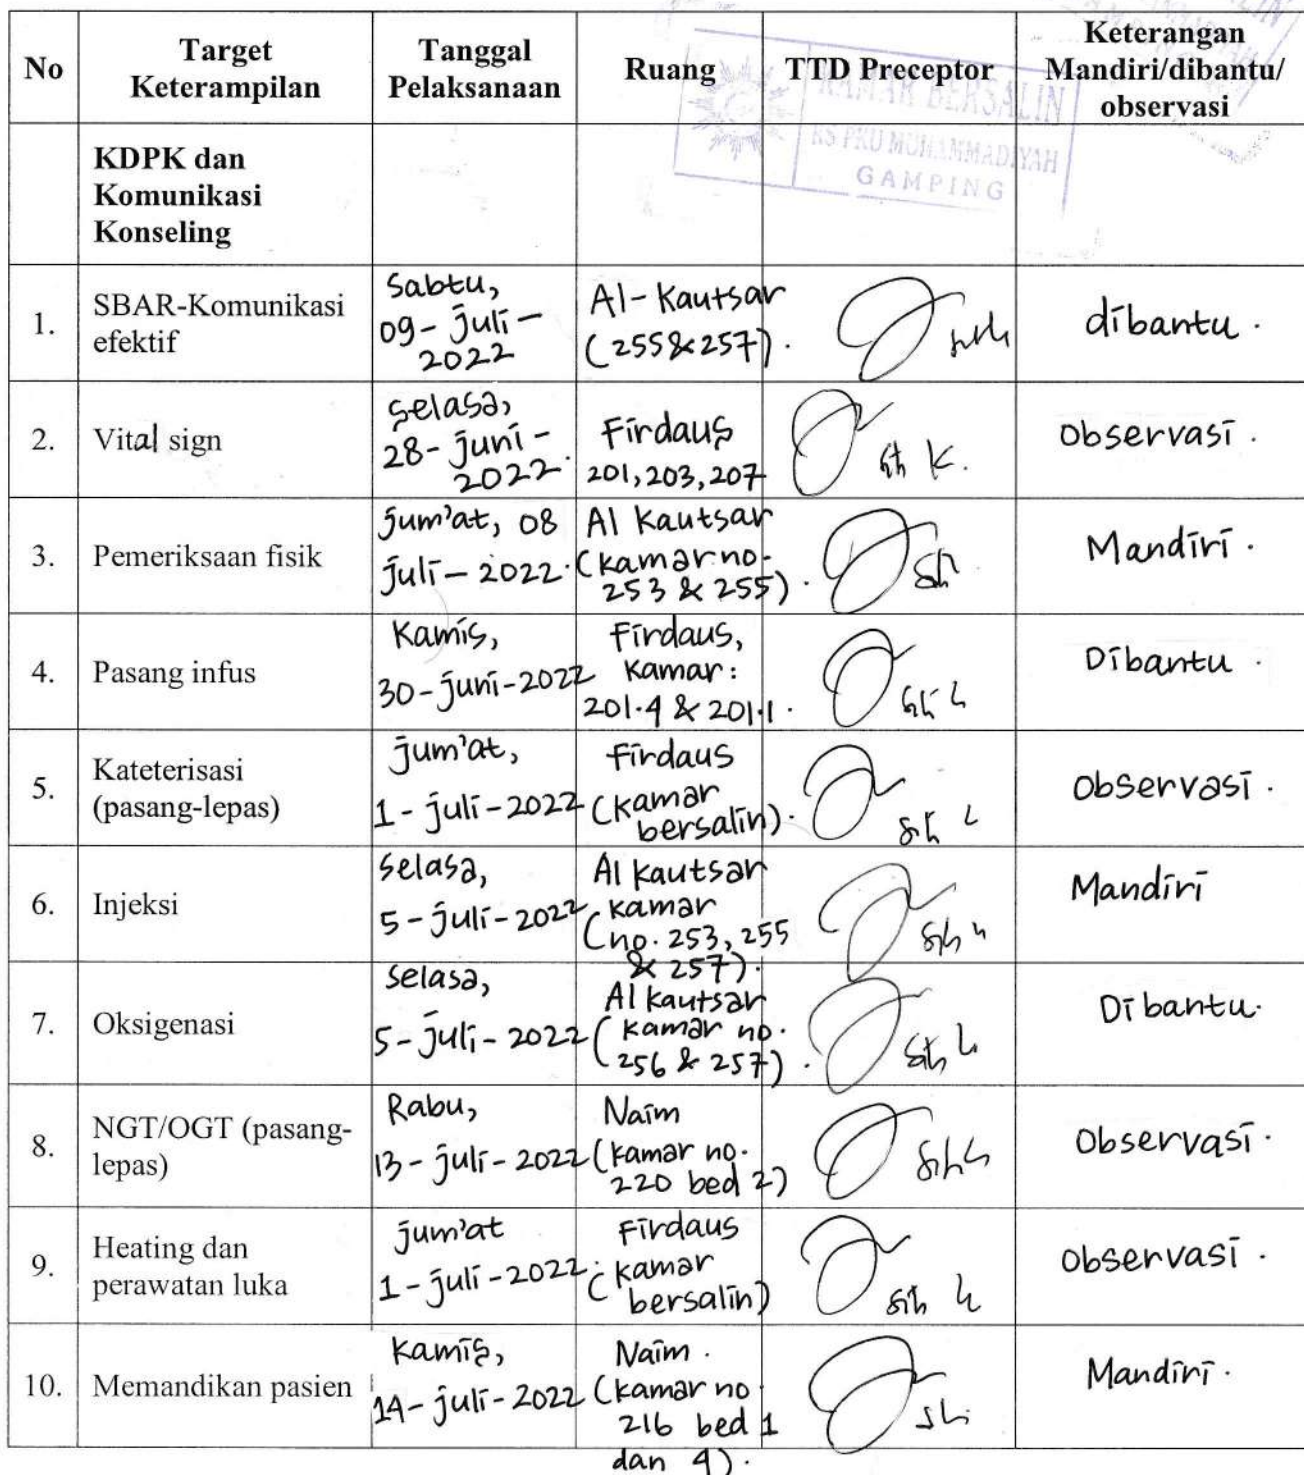 No
Target
Keterampilan
Tanggal
Pelaksanaan
Ruang
TTD Preceptor
Keterangan
Mandiri/dibantu/
observasi
KAMAR BERSALIN
RS PKU MUHAMMADIYAH
GAMPING
KDPK dan
Komunikasi
Konseling
1.
SBAR-Komunikasi
efektif
Sabtu,
09-juli-
2022
Al-Kautsar
(255&257).
dibantu.
2.
Vital sign
Selasa,
28-juni-
2022.
Firdaus
201,203,207
Observasi.
3.
Pemeriksaan fisik
jum'at, 08
juli-2022.
Al Kautsar
(kamar no.
253 & 255).
Mandiri.
4.
Pasang infus
Kamis,
30-juni-2022
Firdaus,
Kamar:
201.4 & 201.1.
Dibantu.
5.
Kateterisasi
(pasang-lepas)
jum'at,
1-juli-2022
Firdaus
(kamar
bersalin).
Observasi.
6.
Injeksi
selasa,
5-juli-2022
Al kautsar
(kamar
no. 253, 255
& 257).
Mandiri
7.
Oksigenasi
selasa,
5-juli-2022
Al kautsar
(kamar no.
256 & 257).
Dibantu.
8.
NGT/OGT (pasang-
lepas)
Rabu,
13-juli-2022
Naim
(kamar no.
220 bed 2)
Observasi.
9.
Heating dan
perawatan luka
jum'at
1-juli-2022.
Firdaus
(kamar
bersalin)
Observasi.
10.
Memandikan pasien
Kamis,
14-juli-2022
Naim.
(kamar no
216 bed 1
dan 4).
Mandiri.